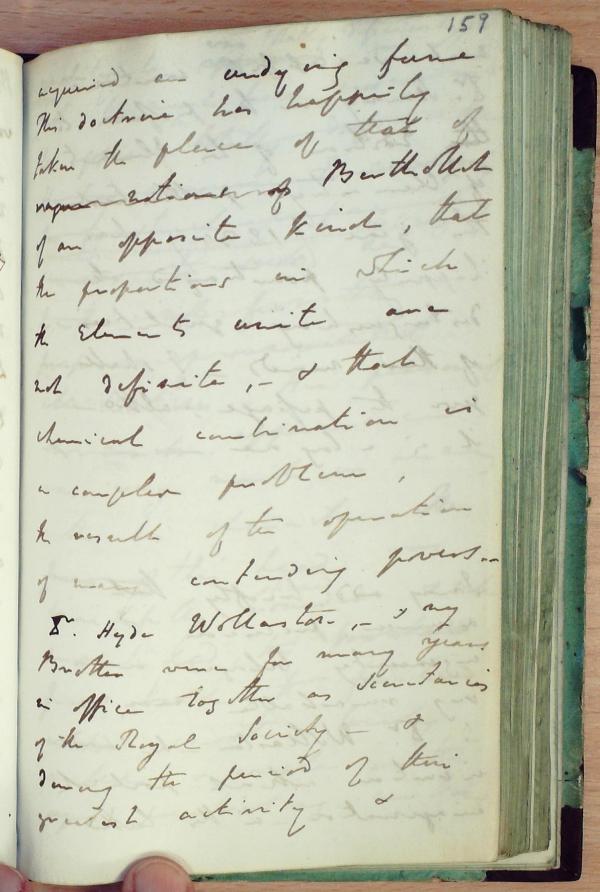 159
acquired an undying fame
This doctrine has happily
taken the place of that of
notions of Berthollet
of an opposite kind, that
the proportions in which
the Elements unite are
not definite, - & that
chemical combination is
a complex problem,
the result of the operation
of many contending powers --
Dr. Hyde Wollaston, - & my
Brother were for many years
in office together as Secretaries
of the Royal Society - &
during the period of their
greatest activity &